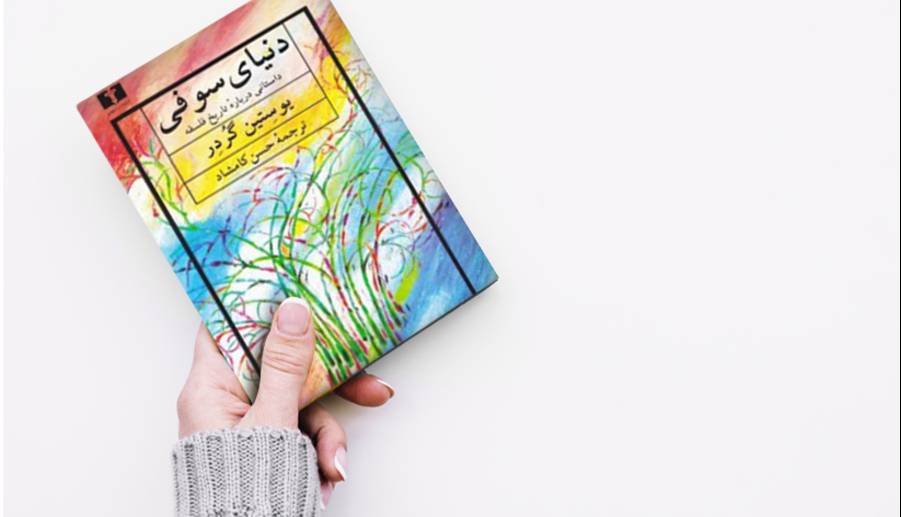 دنیای سوفی
داستانی دربارهٔ تاریخ فلسفه
یوستین گُردِر
ترجمهٔ حسن کامشاد